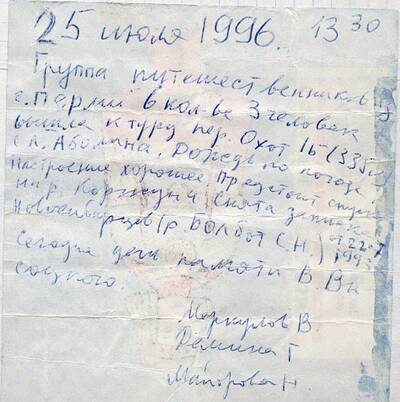 25 июля 1996. 13 30
Группа путешественников из
г. Перми в кол-ве 3 человек
вышла к туру пер. Охот 1Б (335
с л. Аболина. Дождь по погоде,
настроение хорошее. Предстоит спуск
на р. Корженд. Снята записка
новосибирцев (р. Болбот С.Н.) от 22.07 1993
Сегодня день памяти В. Вы
соцкого.
Меркулов В.
Ремина Г
Майорова Н